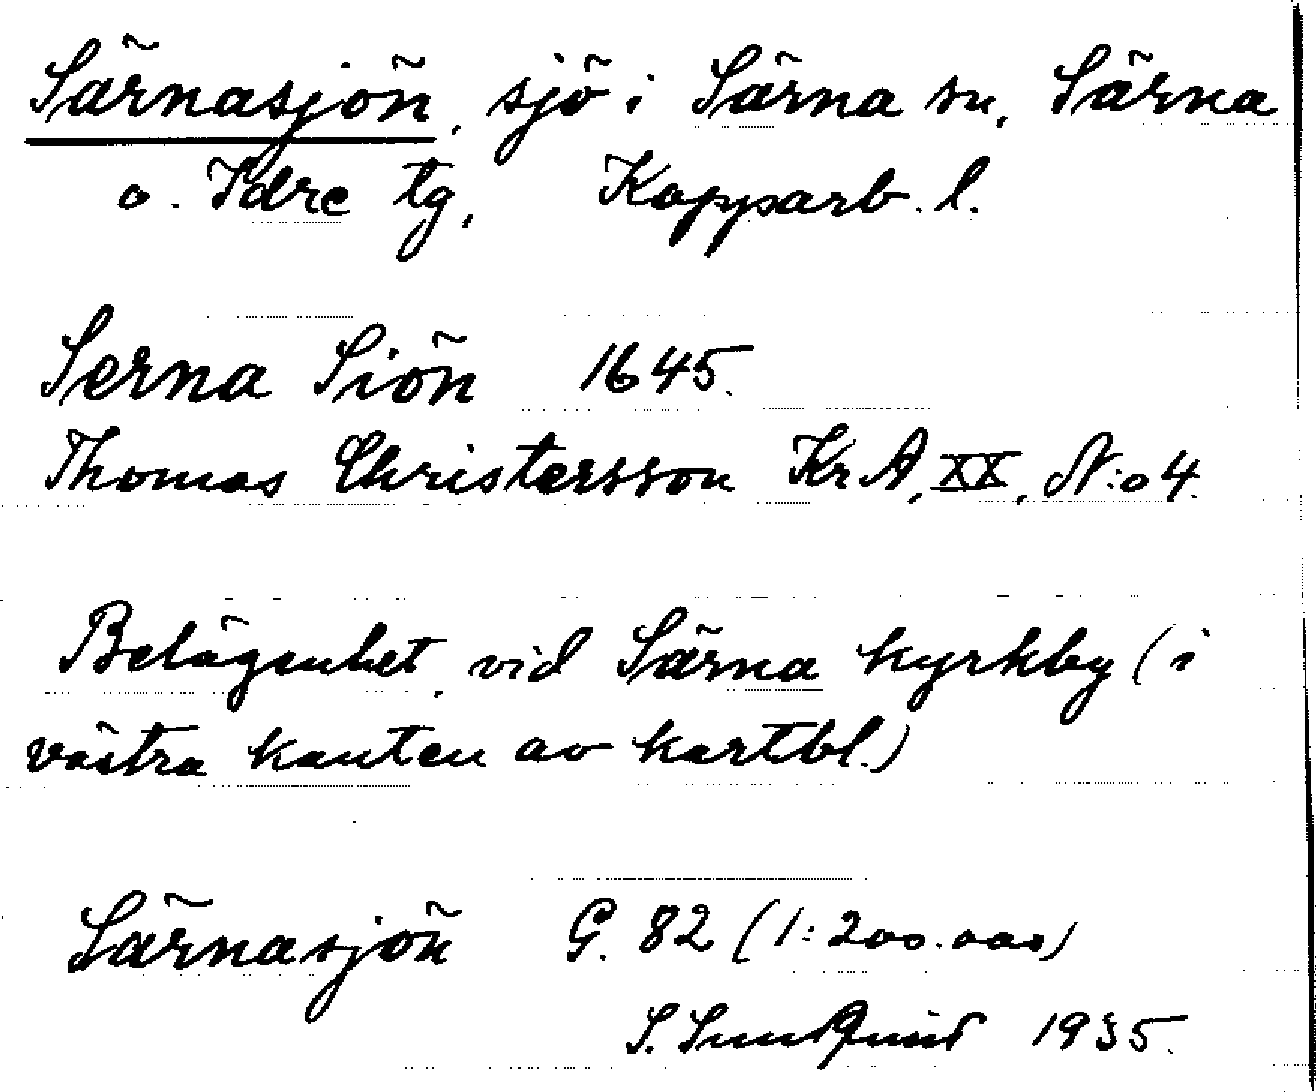 Särnasjön, sjö i Särna sn, Särna
o. Idre tg, Kopparb. l.
Serna Siön 1645.
Thomas Christersson KrA, XX, N:o 4.
Belägenhet vid Särna kyrkby (i
västra kanten av kartbl.)
Särnasjön G. 82 (1:200.000)
S. Sundquist 1935.